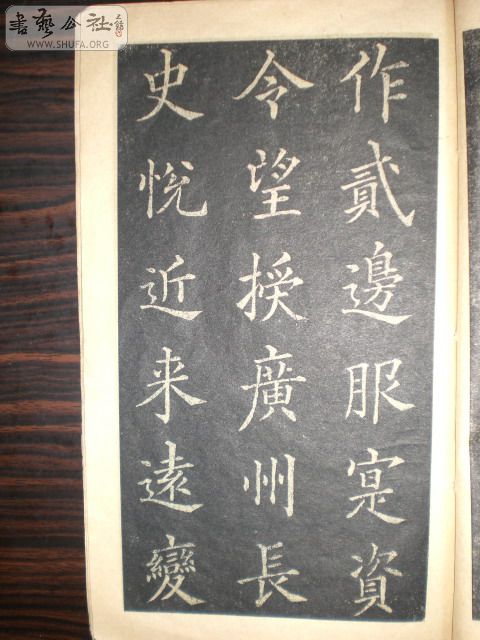 書藝公社
WWW.SHUFA.ORG
作貳邊服寔資
令望授廣州長
史悅近来遠變